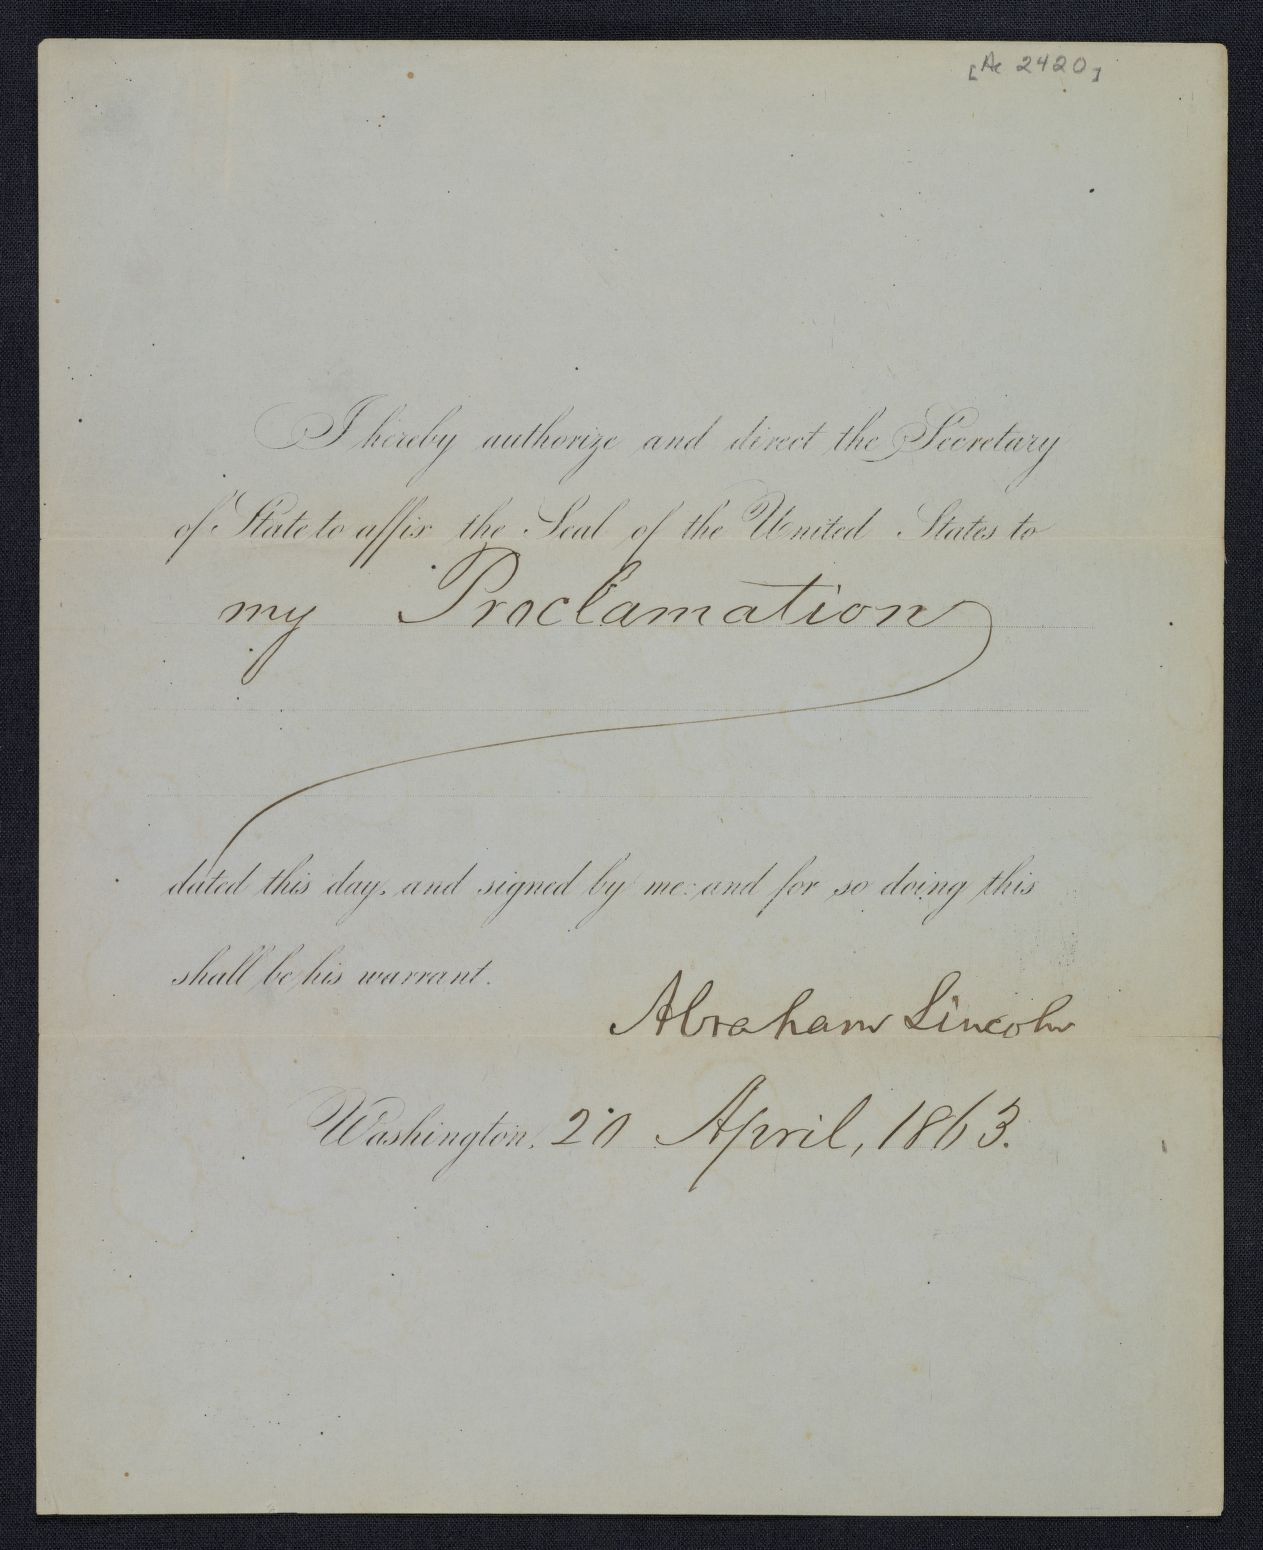 [Ac 2420]
I hereby authorize and direct the Secretary
of State to affix the Seal of the United States to
my Proclamation
dated this day, and signed by me: and for so doing this
shall be his warrant.
Abraham Lincoln
Washington, 20 April, 1863.